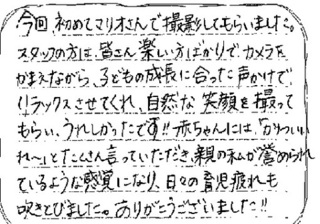 今回、初めてマリオさんで撮影してもらいました。
スタッフの方は、皆さん楽しい方ばかりで、カメラを
かまえながら、子どもの成長に合った声かけで
リラックスさせてくれ、自然な笑顔を撮って
もらい、うれしかったです!!赤ちゃんには、「かわいい
れ〜」とたくさん言っていただき、親の私が誉められ
ているような感覚になり、日々の育児疲れも
吹きとびました。ありがとうございました!!